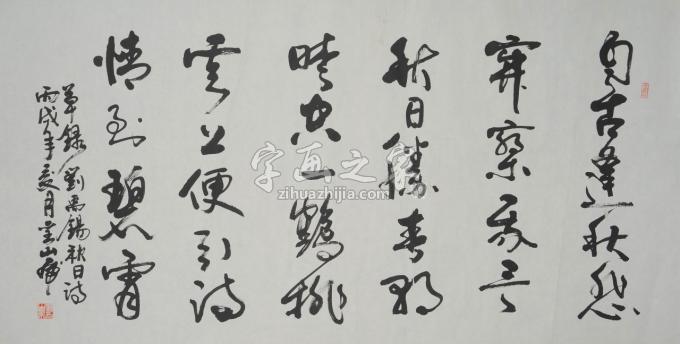 自古逢秋悲
寂寥我言
秋日勝春朝
晴空一鶴排
云上便引詩
情到碧霄
草錄劉禹錫秋日詩
丙戌年夏月
字画之家
zihuazhijia.com